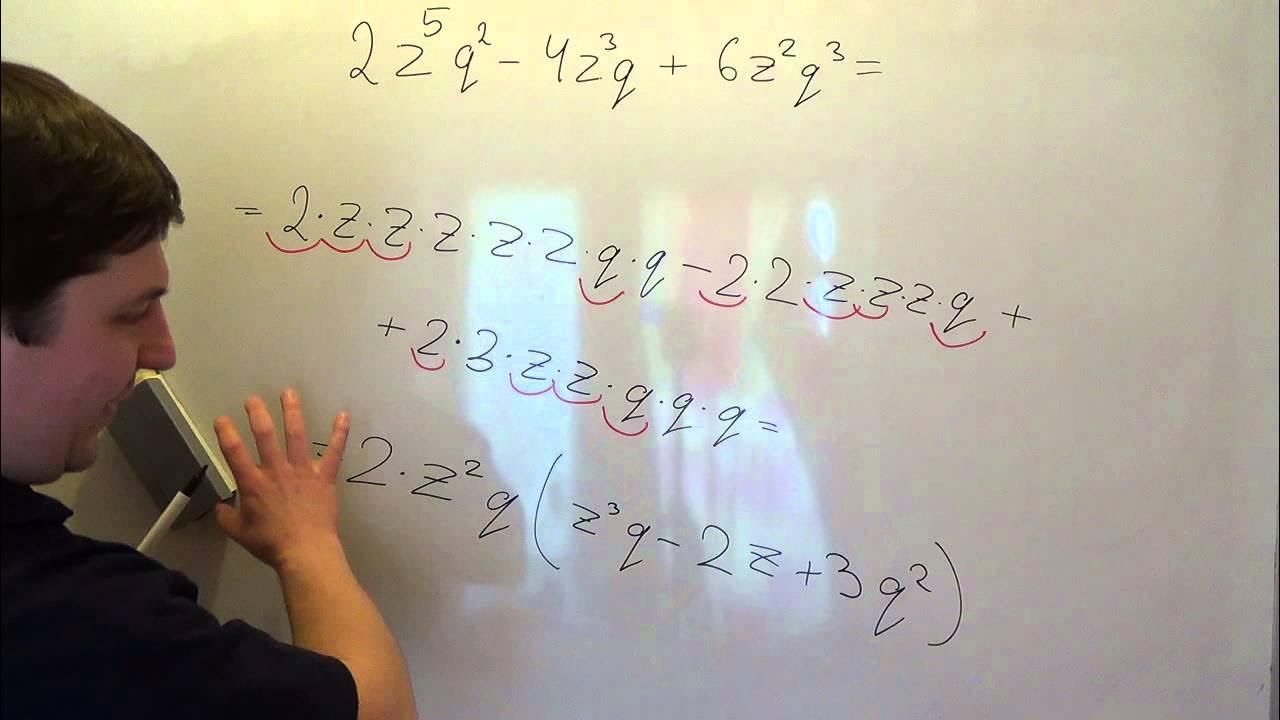 2z⁵q² - 4z³q + 6z²q³ =
= 2·z·z·z·z·z·q·q - 2·2·z·z·z·q +
+ 2·3·z·z·q·q·q =
= 2·z²q(z³q - 2z + 3q²)